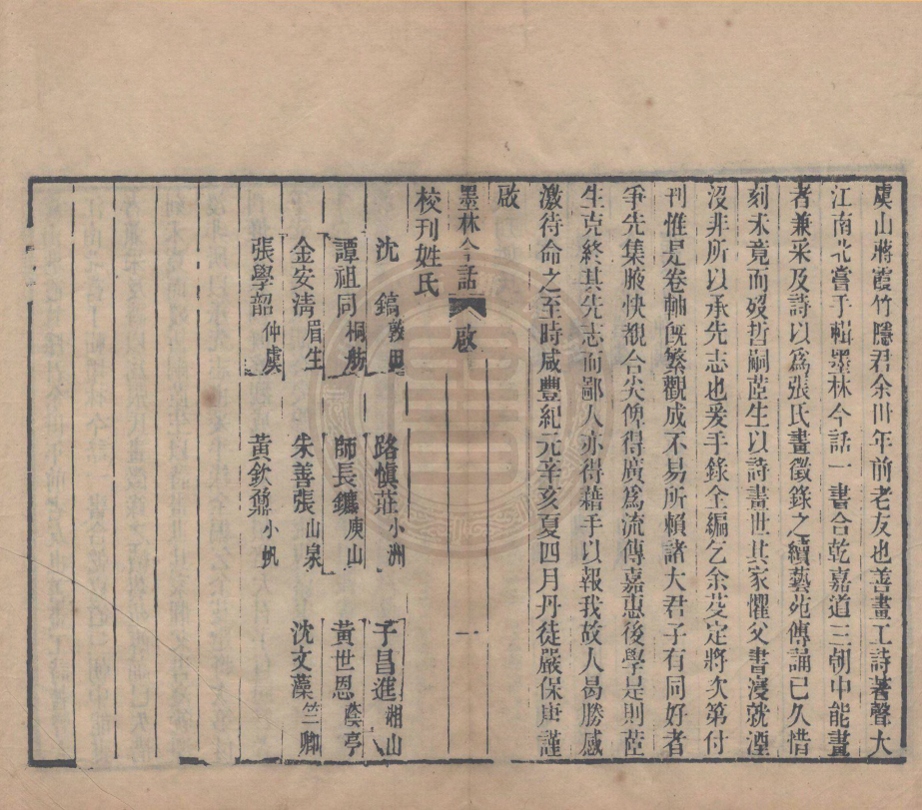 虞山蔣霞竹隱君余卅年前老友也善畫工詩著聲大
江南北嘗手輯墨林今話一書合乾嘉道三朝中能畫
者兼采及詩以爲張氏畫徵錄之續藝苑傳誦已久惜
刻未竟而歿哲嗣茝生以詩畫世其家懼父書寖就湮
沒非所以承先志也爰手錄全編乞余芟定將次第付
刊惟是卷軸旣繁觀成不易所賴諸大君子有同好者
爭先集腋快覩合尖俾得廣爲流傳嘉惠後學是則茝
生克終其先志而鄙人亦得藉手以報我故人曷勝感
激待命之至時咸豐紀元辛亥夏四月丹徒嚴保庸謹
啟
墨林今話 啟 一
校刊姓氏
沈鎬敦田 路愼莊小洲 于昌進湘山
譚祖同桐舫 師長鑣庚山 黃世恩蔭亭
金安淸眉生 朱善張山泉 沈文藻竺卿
張學韶仲虞 黃欽鼐小帆